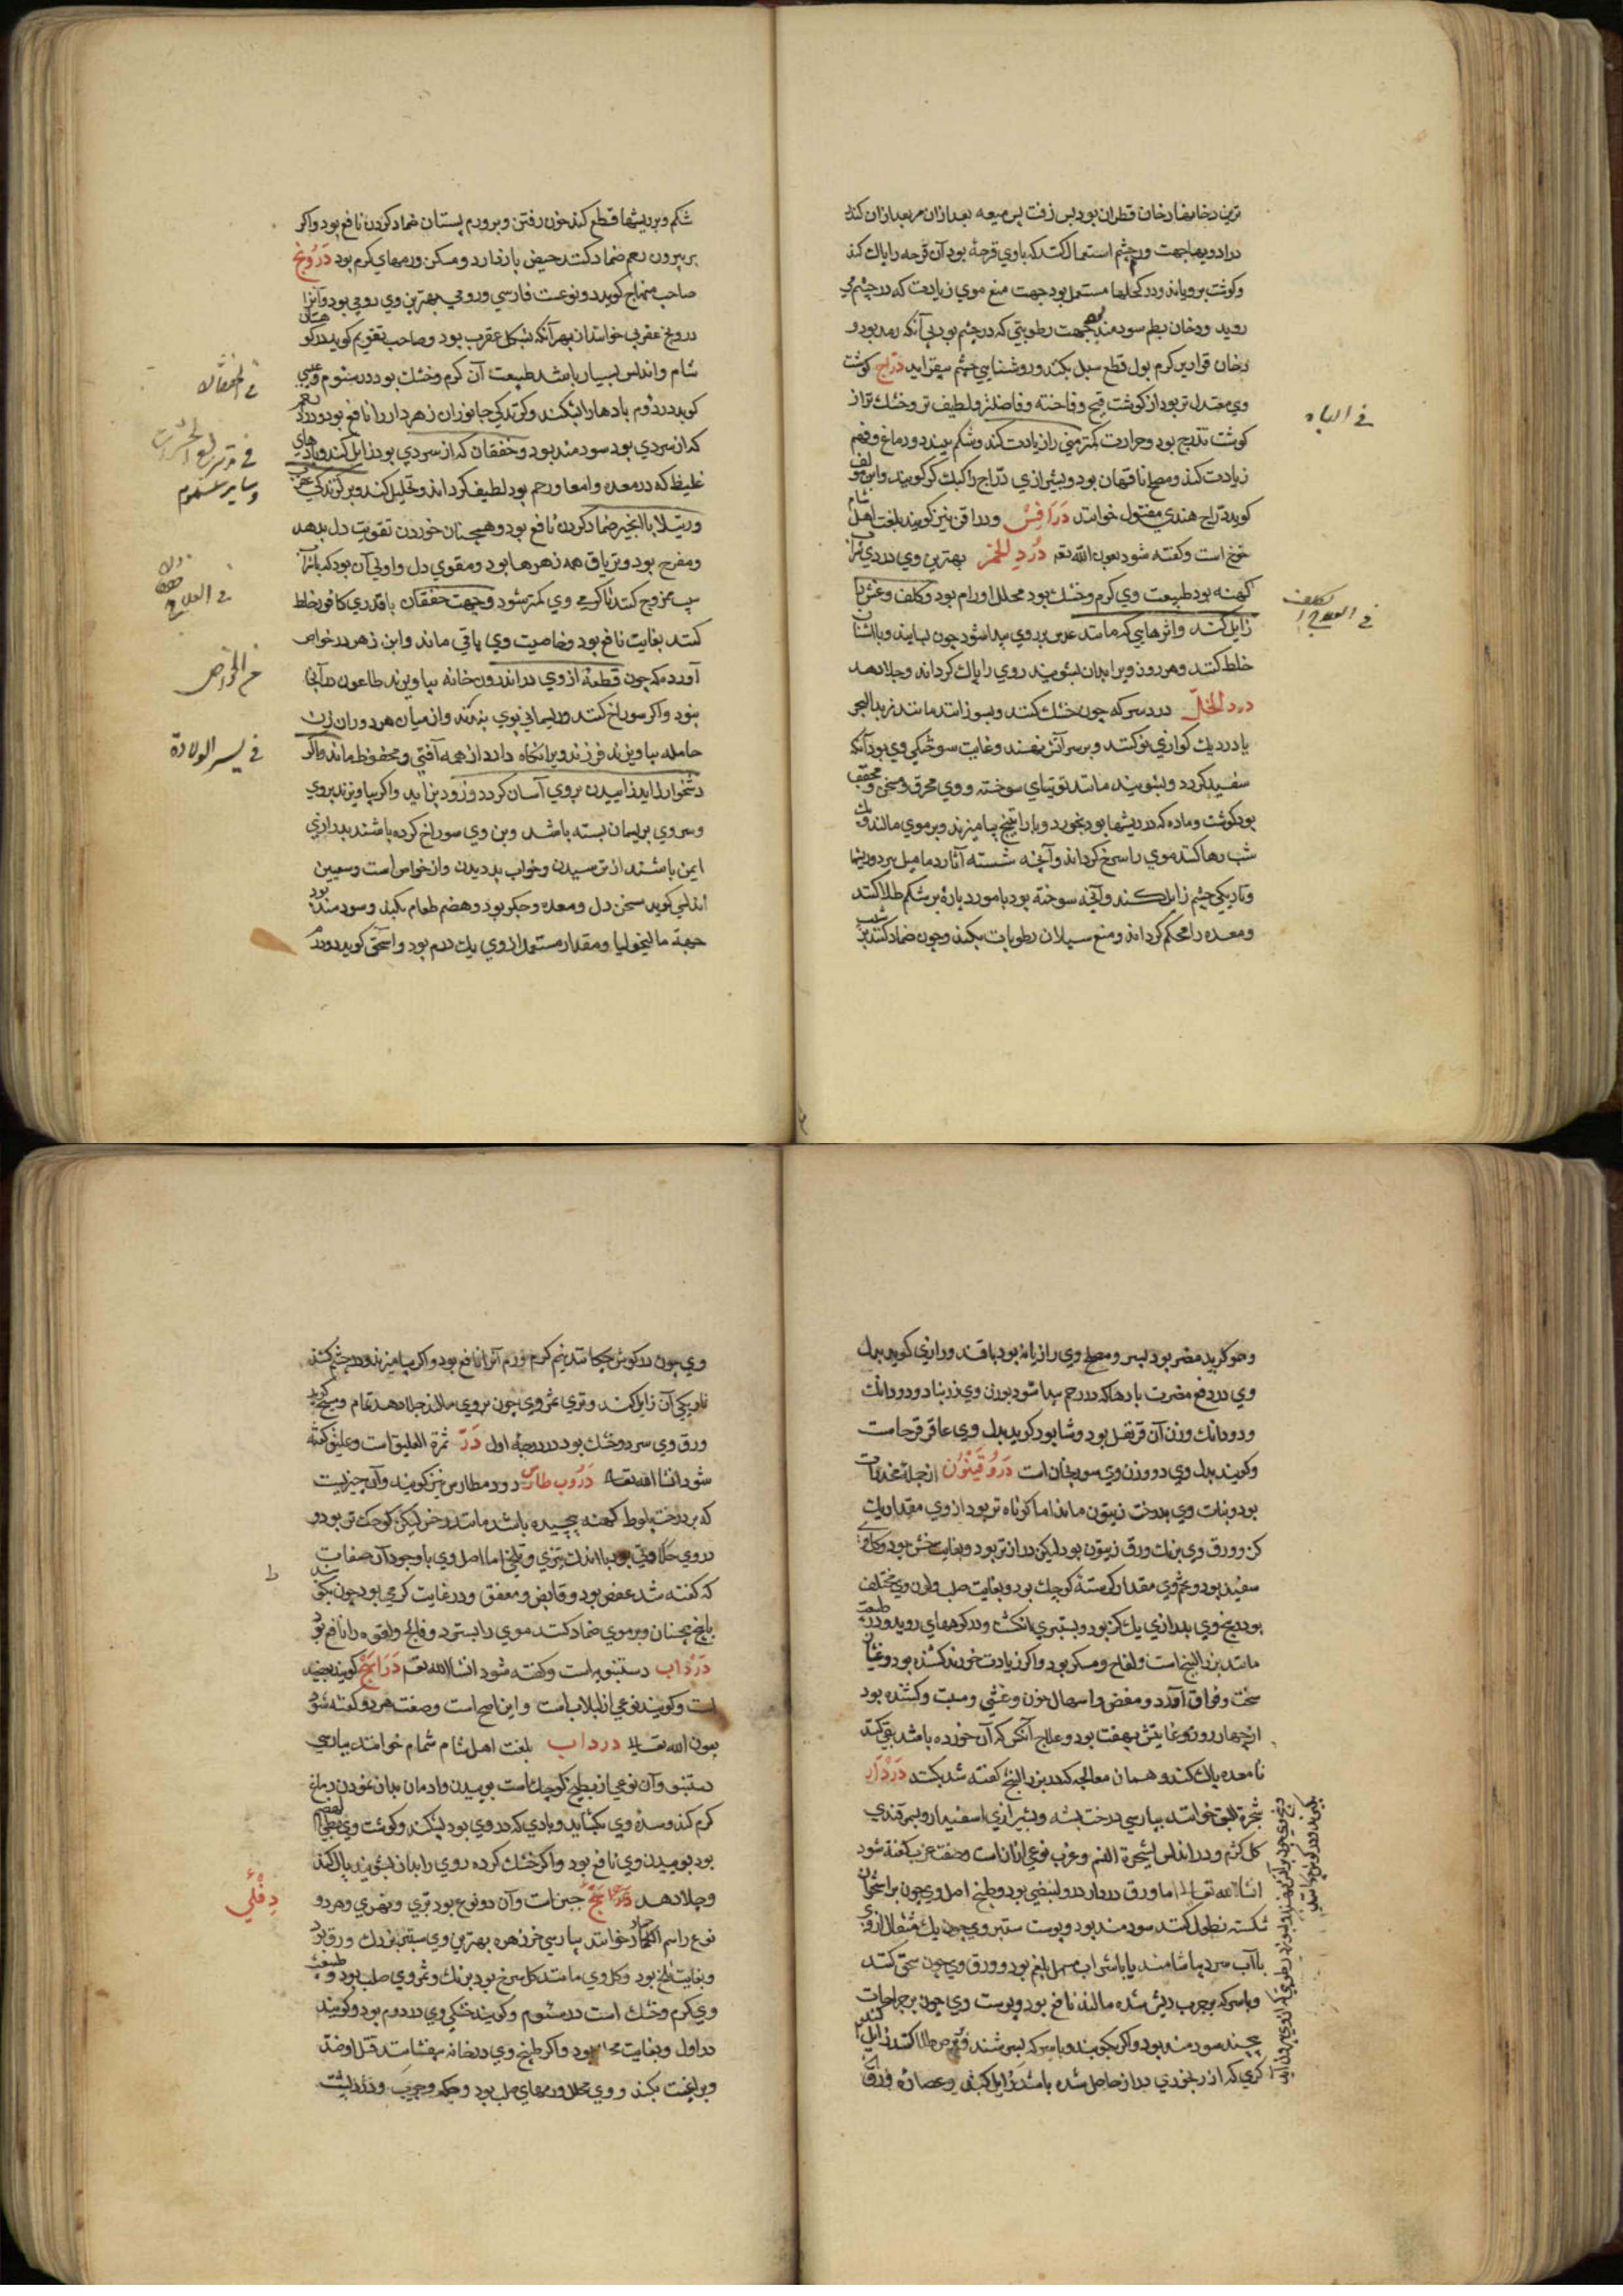 ترین دخانها دخان قطران بود پس زفت پس میعه بعد ازان مر بعد ازان کندر
در ادویها جهت ورم چشم استعمال کنند که باوی قرحهٔ بود آن قرحه را پاک کند
وکوشت برویاند ودر کحلها مستعمل بود جهت منع موی زیادت که در چشم می
روید ودخان بطم سودمند بود جهت رطوبتی که در چشم بود بی آنکه رمد بود و
دخان قواریر کرم بود قطع سبل بکند وروشنایی چشم بیفزاید دراج کوشت
وی معتدل تر بود از کوشت قبج وفاخته وفاضلتر ولطیف تر وخشک تر از
کوشت تذرج بود وحرارت کمتر منی را زیادت کند وشکم ببندد ودماغ وفهم
زیادت کند ومصلح ناقهان بود وبشیرازی دراج را کبک کرکویند وابن مولف
کوید دراج هندی مقتول خوانند درافس ودراقن نیز کویند بلغت اهل شام
خوخ است وکفته شود بعون الله تعه درد الخمر بهترین وی دردی شراب
کهنه بود طبیعت وی کرم وخشک بود محلل اورام بود وکلف ونمش را
زایل کند واثرهایی که مانند عدس بر روی پیدا شود چون بسایند وبا اشنان
خلط کنند وهر روز ویرا بدان بشویند روی را پاک کرداند وجلا دهد
درد الخل درد سرکه چون خشک کنند وبسوزانند مانند زبد البحر
یا در دیک کواری نو کنند وبر سر آتش نهند وغایت سوختکی وی بود آنکه
سفید کردد وبشویند مانند توتیای سوخته ووی محرق ومسخن ومجفف
بود کوشت وماده که در ریشها بود بخورد وبا راتینج بیامیزند وبر موی مالند ویک
شب رها کنند موی را سرخ کرداند وآنچه شسته آثار دمامیل ببرد وریشها
وتاریکی چشم زایل کند وآنچه سوخته بود با مورد یارهٔ بر شکم طلا کنند
ومعده را محکم کرداند ومنع سیلان رطوبات بکند وچون ضماد کنند بر شیب
فی الباه
فی العلاج الکلف
شکم وبر ریشها قطع کند خون رفتن وبر ورم پستان ضماد کردن نافع بود واکر
بر بیرون رحم ضماد کنند حیض باز دارد ومسکن ورمهای کرم بود درونج
صاحب منهاج کوید دو نوعست فارسی ورومی بهترین وی رومی بود وآنرا
درونج عقربی خوانند از بهر آنکه بشکل عقرب بود وصاحب تقویم کوید در کوهستان
شام واندلس بسیار باشد طبیعت آن کرم وخشک بود در سئوم وعیسی
کوید در دوم بادها را بشکند وکزندکی جانوران زهردار را نافع بود ودرد رحم
که از سردی بود سودمند بود وخفقان که از سردی بود زایل کند وبادهای
غلیظ که در معده وامعا ورحم بود لطیف کرداند وتحلیل کند وبر کزندکی عقرب
ورتیلا با انجیر ضماد کردن نافع بود وهمچنان خوردن تقویت دل بدهد
ومفرح بود وتریاق همه زهرها بود ومقوی دل واولی آن بود که با شراب
سیب ممزوج کنند تا کرمی وی کمتر شود وجهت خفقان با قدری کافور خلط
کنند بغایت نافع بود وخاصیت وی باقی ماند وابن زهر در خواص
آورده که چون قطعهٔ از وی در اندرون خانه بیاویزند طاعون در آنجا
نبود واکر سوراخ کنند وریسمانی بوی بندند وازمیان هر دو ران زن
حامله بیاویزند فرزند ویرا نکاه دارد از همه آفتی ومحفوظ ماند واکر
دشخوار زاید زاییدن بروی آسان کردد وزود بزاید واکر بیاویزند بروی
وسر وی بریسمان بسته باشد وبن وی سوراخ کرده باشند بدرازی
ایمن باشند از ترسیدن وخواب بد دیدن واز خواص است وسمین
اندلسی کوید مسخن دل ومعده وجکر بود وهضم طعام بکند وسودمند بود
جهة مالیخولیا ومقدار مستعمل از وی یک درم بود واسحق کوید دو درم
فی الخفقان
وسایر السموم
فی العلاج
فی الخواص
فی یسر الولادة
وی در دفع مضرت بادها که در رحم پیدا شود بوزن وی زرنباد ودو دانک
ودو دانک وزن آن قرنفل بود وشابور کوید بدل وی عاقرقرحاست
وکویند بدل وی دو وزن وی سورنجان است دروقینون از جملهٔ مخدرات
بود ونبات وی بدرخت زیتون ماند اما کوتاه تر بود از وی مقدار یک
کز وورق وی برنک ورق زیتون بود لیکن دراز تر بود وبغایت خشن بود وکل وی
سفید بود وتخم وی مقدار کرسنهٔ کوچک بود وبغایت صلب ولون وی مختلف
بود وبیخ وی بدرازی یک کز بود وبستبری انکشت ودر کوههای روید ودر طبیعت
مانند بزر البنج است ولفاح ومسکر بود واکر زیادت خورند کشنده بود وغثیان
سخت وفواق آورد ومغص واسهال خون وغشی ومسبت وکشنده بود
از چهار روز وغایتش بهفت بود وعلاج آنکس که آن خورده باشد بقی کنند
تا معده پاک کند وهمان معالجه که در بزر البنج کفته شد بکنند دردار
شجرة البق خوانند بپارسی درخت پشه وبشیرازی اسفیدار وبسمرقندی
کل کژم ودر اندلس شجرة النم وغرب نوعی از آنست وصفت غرب کفته شود
انشا الله تعالی اما ورق دردار در ولینفی بود وطبیخ اصل وی چون بر استخوان
شکسته نطول کنند سودمند بود وپوست ستبر وی چون یک مثقال از وی
با آب سرد بیاشامند یا با شراب مسهل بلغم بود وورق وی چون سحق کنند
وبا سرکه بر جرب ریش شده مالند نافع بود وپوست وی چون بر جراحات
پیچند سودمند بود
کری که از رنجوری دراز حاصل شده باشد زایل کند وعصارهٔ ورق
وی چون در کوش چکانند نیم کرم ورم آنرا نافع بود واکر بیامیزند ودر چشم کنند
تاریکی آن زایل کند وتری ثمر وی چون بر روی مالند جلا دهد تمام ومسیح کوید
ورق وی سرد وخشک بود در درجهٔ اول در ثمرة العلیق است وعلیق کفته
شود انشا الله تعه دروب طارس دورد مطارس نیز کویند وآن چیزیست
که بر درخت بلوط کهنه پیچیده باشد مانند سرخس لیکن کوچک تر بود ودر
در وی حلاوتی بود با اندک تیزی وتلخی اما اصل وی با وجود آن صفات
که کفته شد عفص بود وقابض ومعفن ودر غایت کرمی بود چون بکوبند
با بیخ همچنان وبر موی ضماد کنند موی را بسترد وفالج ولقوه را نافع بود
درداب دستنبویه است وکفته شود انشا الله تعه درابج کویند بعضی
است وکویند نوعی از لبلاب است واین اصح است وصفت هر دو کفته شود
بعون الله تعالی درداب بلغت اهل شام شمام خوانند بپارسی
دستنبو وآن نوعی از بطیخ کوچک است بوییدن وادمان بدان نمودن دماغ
کرم کند وسدهٔ وی بکشاید وبادی که در وی بود بشکند وکوشت وی بطی الهضم
بود بوییدن وی نافع بود واکر خشک کرده روی را بدان بشویند پاک کند
وجلا دهد
نوع را سم الحمار خوانند بپارسی خرزهره بهترین وی ستبر بزرک ورق بود
وبغایت تلخ بود وکل وی مانند کل سرخ بود برنک وثمر وی صلب بود وطبیعت
وی کرم وخشک است در سئوم وکویند خشکی وی در دوم بود وکویند
در اول وبغایت محلل بود واکر طبیخ وی در خانه بیفشانند قتل او خد
وبراغیث بکند ووی محلل ورمهای صلب بود وحکه وجرب
دفلی